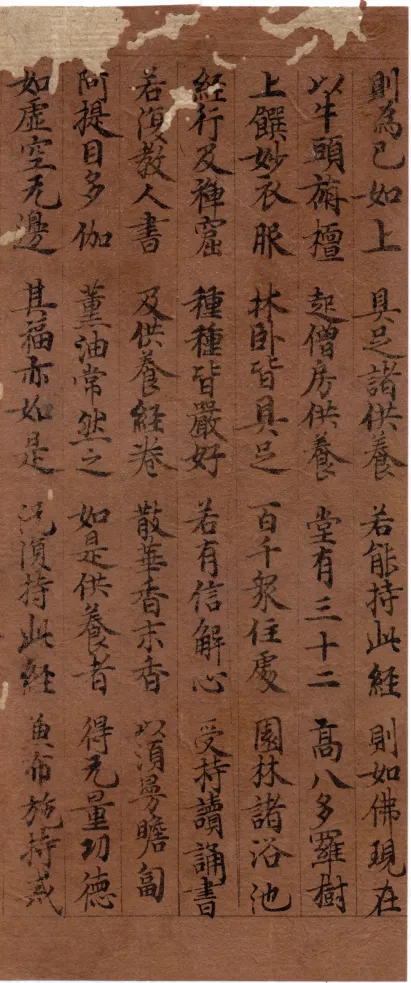 則為已如上 具足諸供養 若能持此經 則如佛現在
以牛頭旃檀 起僧房供養 堂有三十二 高八多羅樹
上饌妙衣服 林卧皆具足 百千眾住處 園林諸浴池
經行及禪窟 種種皆嚴好 若有信解心 受持讀誦書
若復教人書 及供養經卷 散華香末香 以須曼瞻匐
阿提目多伽 薰油常然之 如是供養者 得无量功德
如虛空无邊 其福亦如是 況復持此經 兼布施持戒